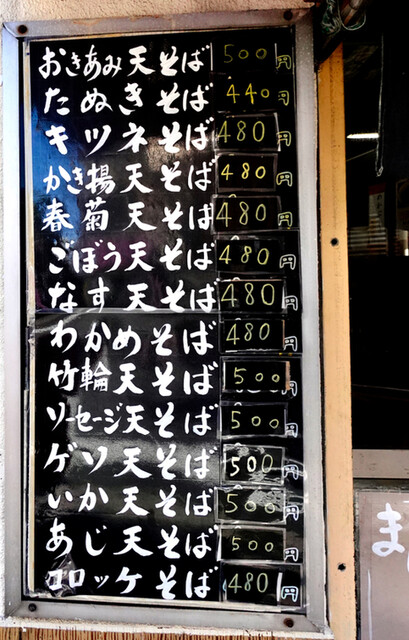 おきあみ天そば 500円
たぬきそば 440円
キツネそば 480円
かき揚天そば 480円
春菊天そば 480円
ごぼう天そば 480円
なす天そば 480円
わかめそば 480円
竹輪天そば 500円
ソーセージ天そば 500円
ゲソ天そば 500円
いか天そば 500円
あじ天そば 500円
コロッケそば 480円
ま